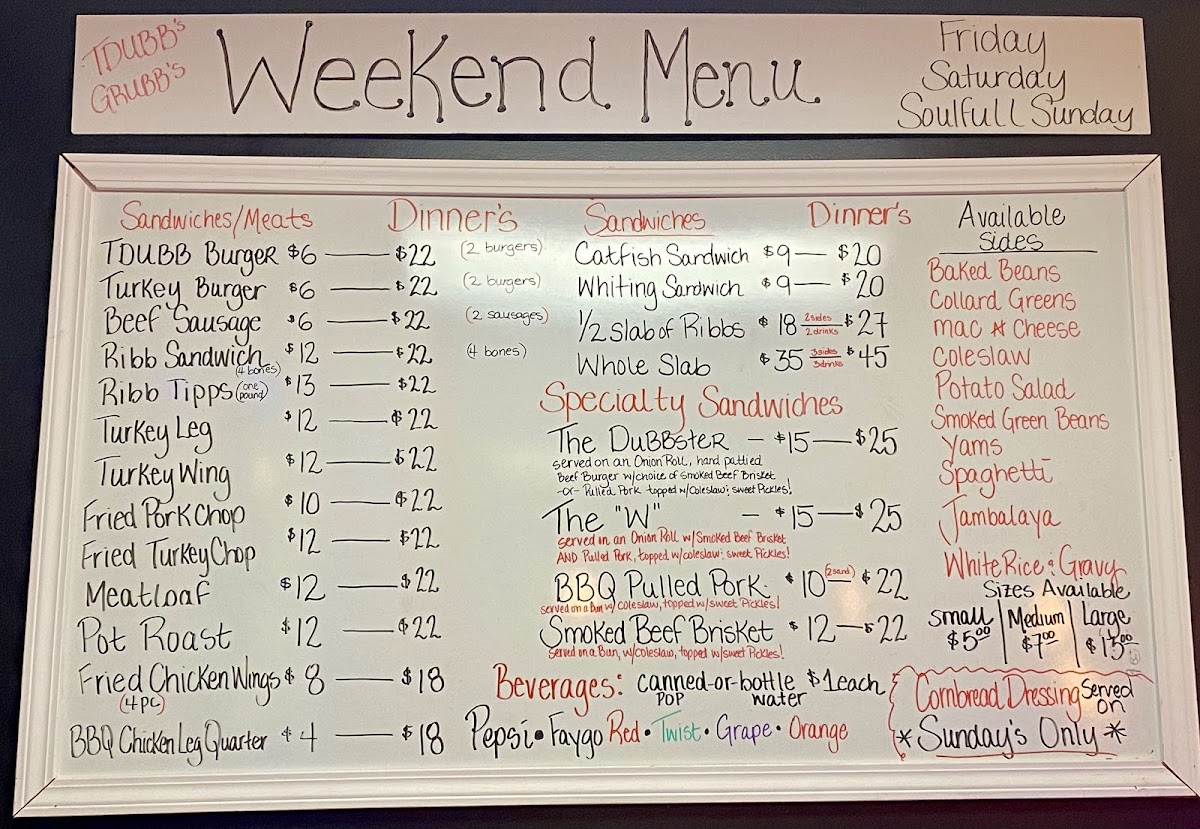 TDUBB's
GRUBB's
Weekend Menu
Friday
Saturday
Soulfull Sunday
Sandwiches/Meats Dinner's
TDUBB Burger $6 — $22 (2 burgers)
Turkey Burger $6 — $22 (2 burgers)
Beef Sausage $6 — $22 (2 sausages)
Ribb Sandwich (4 bones) $12 — $22 (4 bones)
Ribb Tipps (one pound) $13 — $22
Turkey Leg $12 — $22
Turkey Wing $12 — $22
Fried Pork Chop $10 — $22
Fried Turkey Chop $12 — $22
Meatloaf $12 — $22
Pot Roast $12 — $22
Fried Chicken Wings $8 — $18
(4 PC)
BBQ Chicken Leg Quarter $4 — $18
Sandwiches Dinner's
Catfish Sandwich $9 — $20
Whiting Sandwich $9 — $20
1/2 Slab of Ribbs $18 2 sides 2 drinks $27
Whole Slab $35 3 sides 3 drinks $45
Specialty Sandwiches
The DuBBster — $15 — $25
served on an Onion Roll, hand pattied
Beef Burger w/choice of Smoked Beef Brisket
-or- Pulled Pork topped w/Coleslaw & sweet Pickles!
The "W" — $15 — $25
served in an Onion Roll w/Smoked Beef Brisket
AND Pulled Pork, topped w/coleslaw & sweet Pickles!
BBQ Pulled Pork $10 (2 sand) $22
served on a Bun w/coleslaw, topped w/sweet Pickles!
Smoked Beef Brisket $12 — $22
Served on a Bun, w/coleslaw, topped w/sweet Pickles!
Beverages: canned-or-bottle $1 each
POP water
Pepsi • Faygo Red • Twist • Grape • Orange
Available
Sides
Baked Beans
Collard Greens
mac & Cheese
Coleslaw
Potato Salad
Smoked Green Beans
Yams
Spaghetti
Jambalaya
White Rice & Gravy
Sizes Available
small | Medium | Large
$5.00 | $7.00 | $15.00
Cornbread Dressing Served
on
* Sunday's Only *